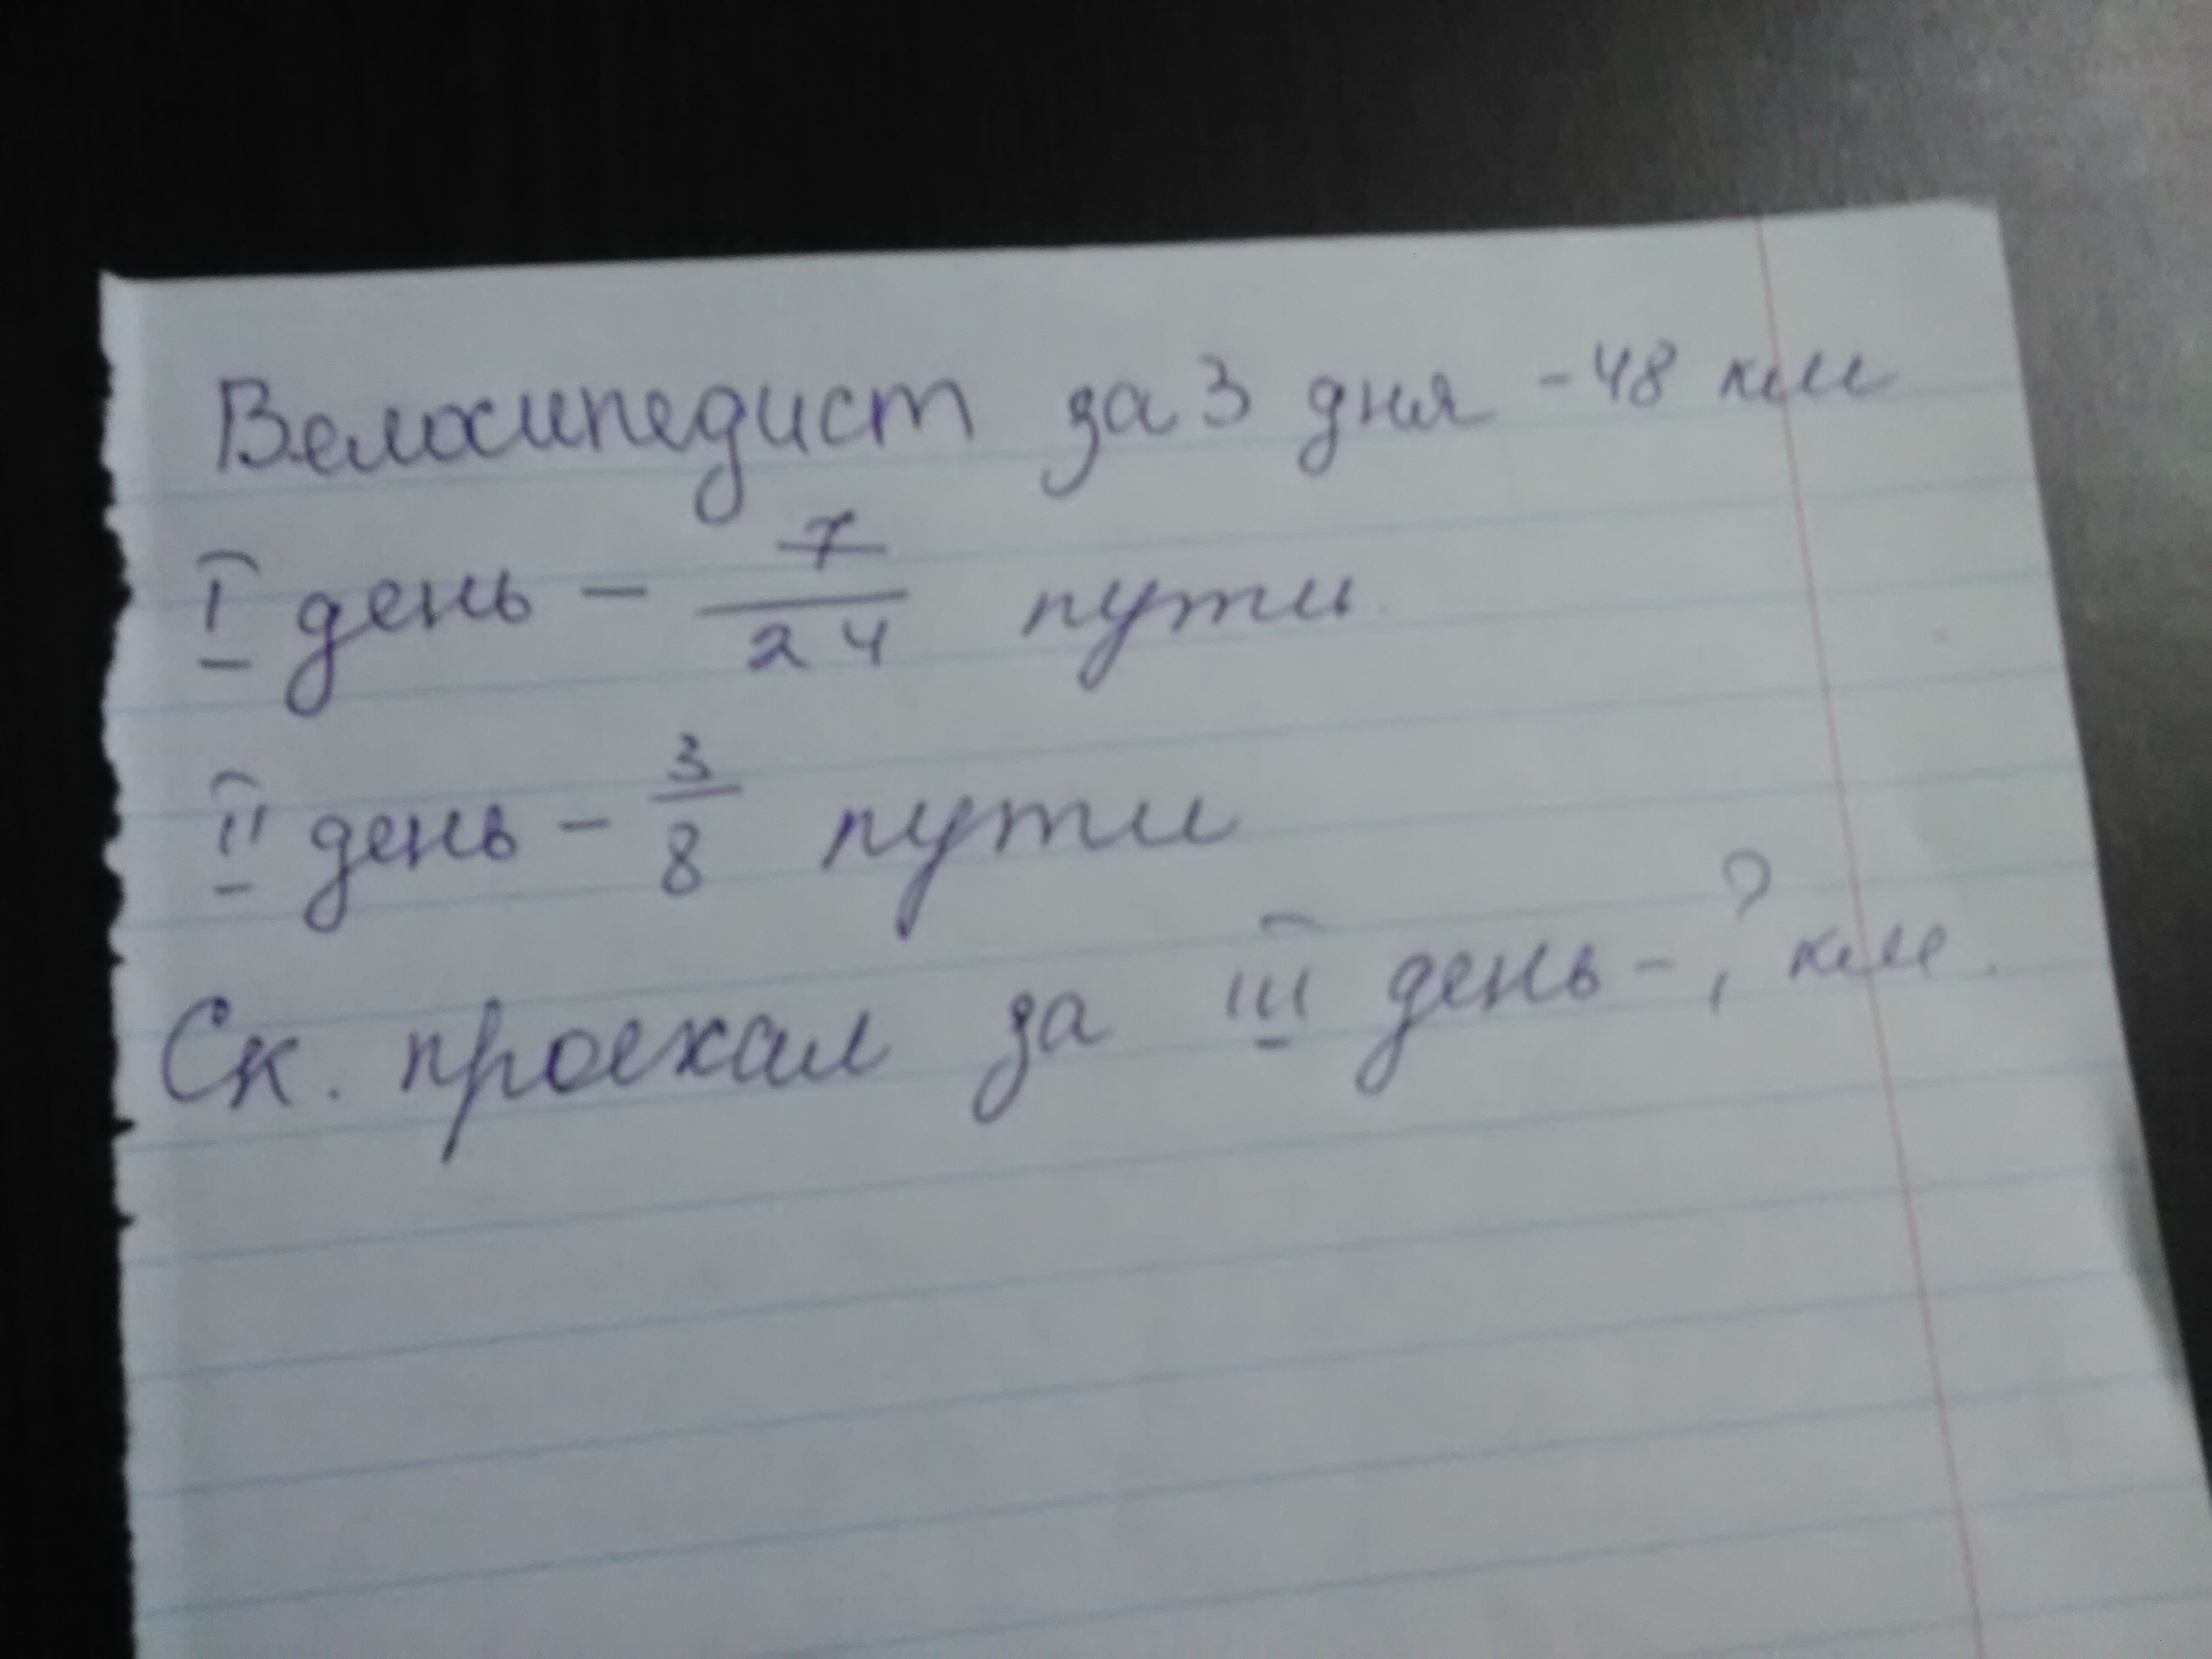 Велосипедист за 3 дня - 48 км
I день - 7/24 пути
II день - 3/8 пути
Ск. проехал за III день - ? км.